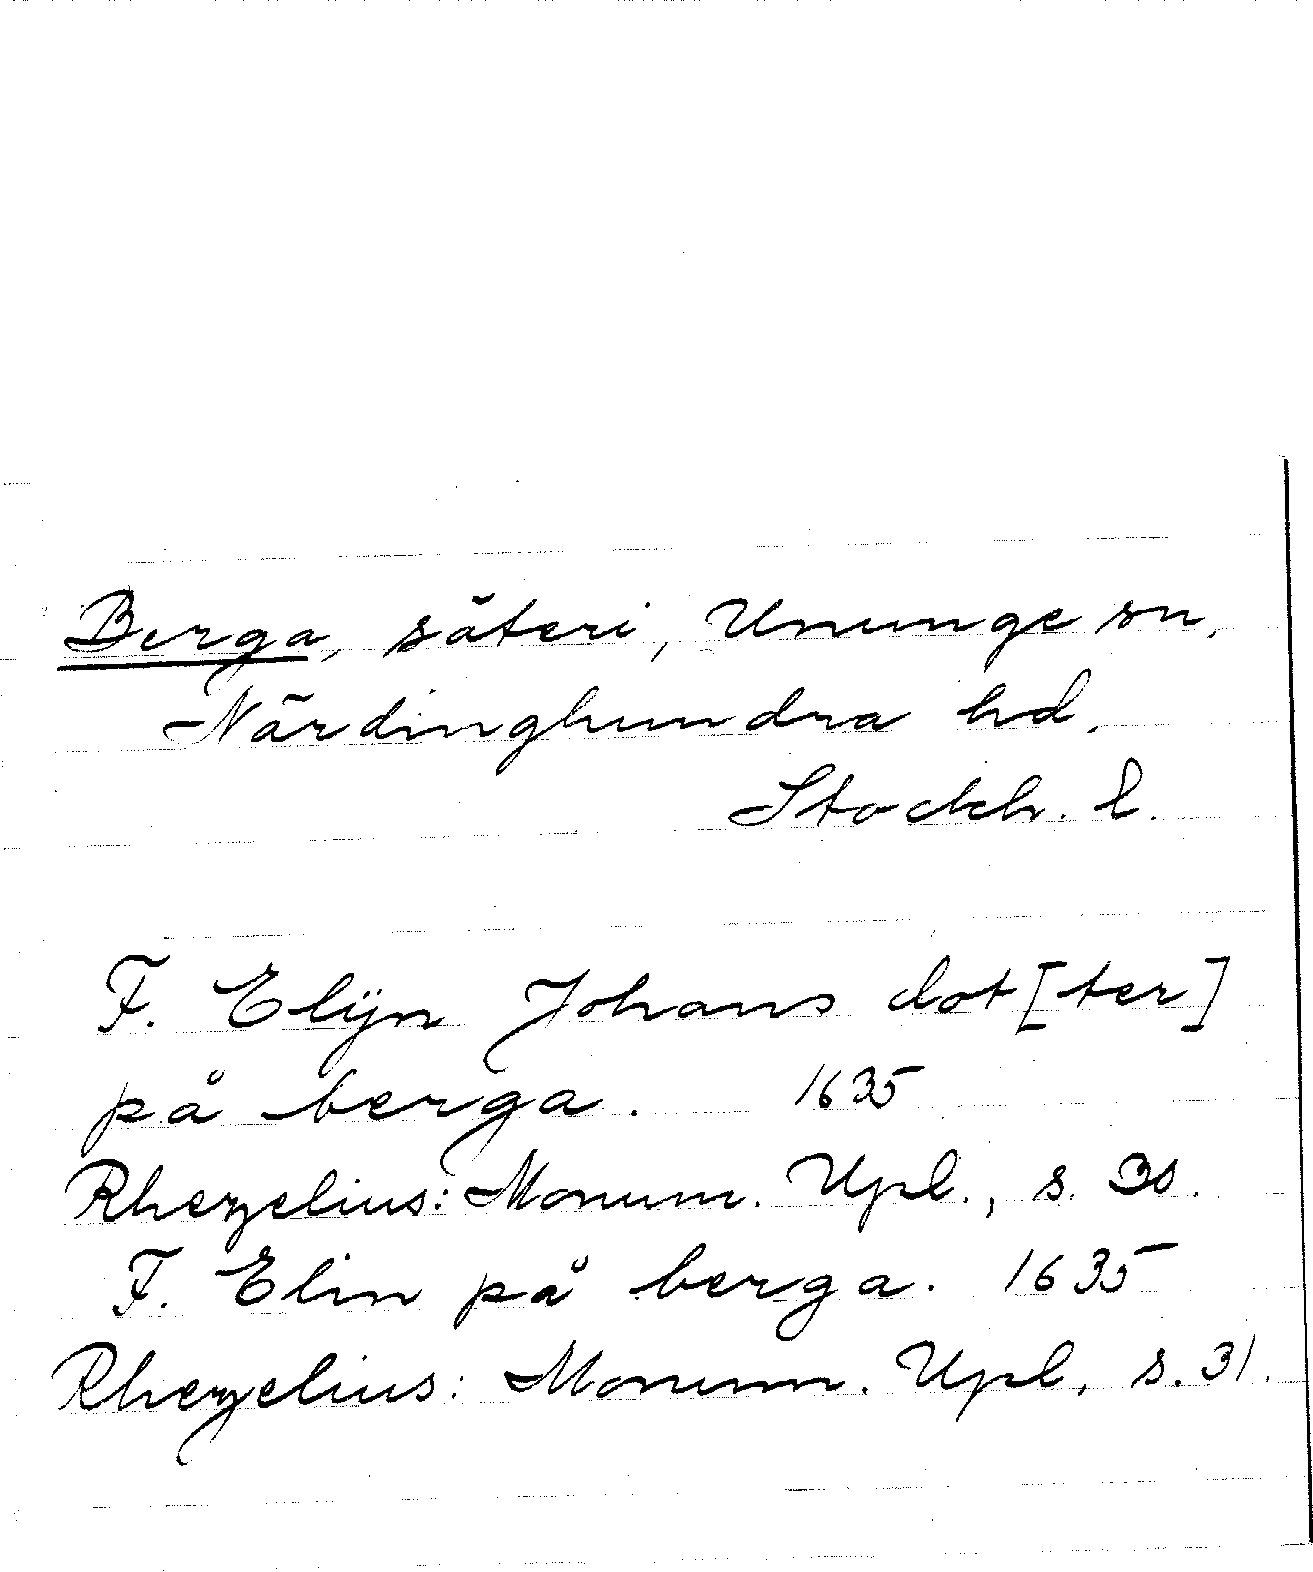 Berga, säteri, Ununge sn,
Närdinghundra hd,
Stockh. l.
F. Elÿn Johans dot[ter]
på berga. 1635
Rhezelius: Monum. Upl., s. 30.
F. Elin på berga. 1635
Rhezelius: Monum. Upl, s. 31.